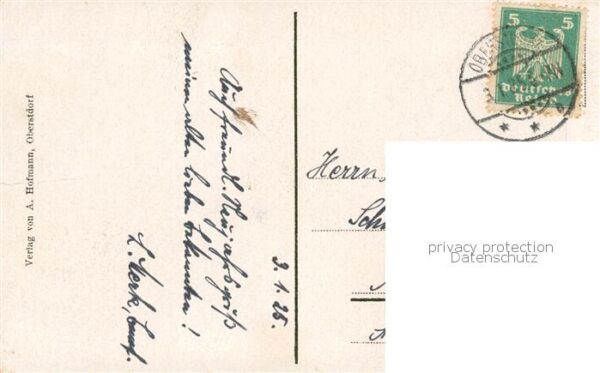 Verlag von A. Hofmann, Oberstdorf
Auf freundl. Neujahrsgruß
meinen alten lieben Bekannten!
3. 1. 25.
5 5
Deutsches
Reich
Herrn
privacy protection
Datenschutz